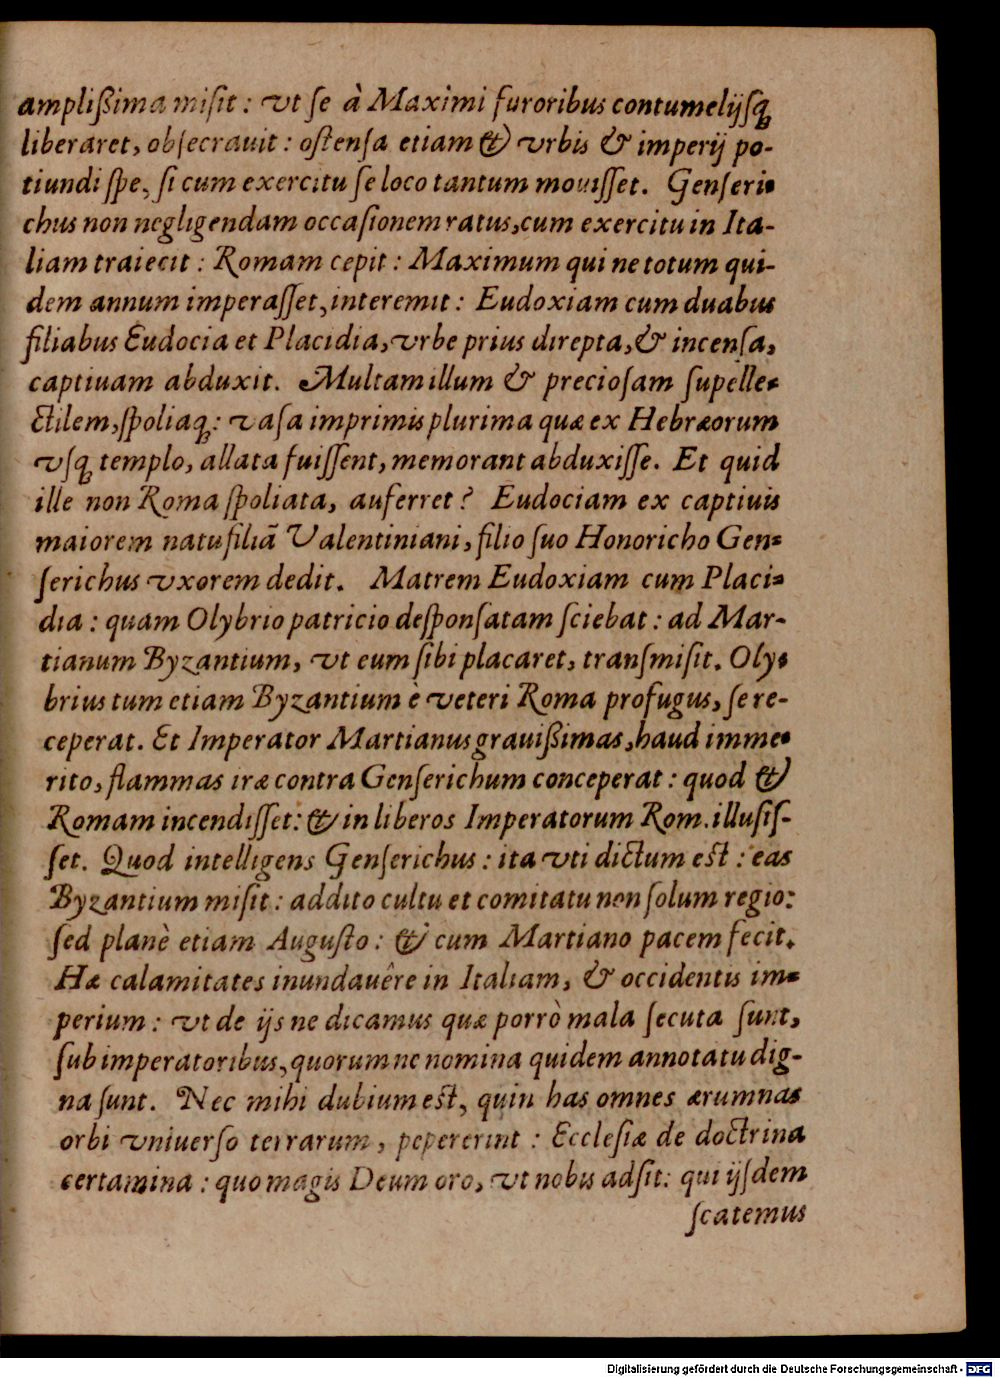 ampliſsima miſit: vt ſe à Maximi furoribus contumelijſq;
liberaret, obſecrauit: oſtenſa etiam & vrbis & imperij po-
tiundi ſpe, ſi cum exercitu ſe loco tantum mouiſſet. Genſeri-
chus non negligendam occaſionem ratus, cum exercitu in Ita-
liam traiecit: Romam cepit: Maximum qui ne totum qui-
dem annum imperaſſet, interemit: Eudoxiam cum duabus
filiabus Eudocia et Placidia, vrbe prius direpta, & incenſa,
captiuam abduxit. Multam illum & precioſam ſupelle-
ctilem, ſpoliaq;: vaſa imprimis plurima quæ ex Hebræorum
vſq; templo, allata fuiſſent, memorant abduxiſſe. Et quid
ille non Roma ſpoliata, auferret? Eudociam ex captiuis
maiorem natu filiã Valentiniani, filio ſuo Honoricho Gen-
ſerichus vxorem dedit. Matrem Eudoxiam cum Placi-
dia: quam Olybrio patricio deſponſatam ſciebat: ad Mar-
tianum Byzantium, vt eum ſibi placaret, tranſmiſit. Oly-
brius tum etiam Byzantium è veteri Roma profugus, ſe re-
ceperat. Et Imperator Martianus grauiſsimas, haud imme-
rito, flammas iræ contra Genſerichum conceperat: quod &
Romam incendiſſet: & in liberos Imperatorum Rom. illuſiſ-
ſet. Quod intelligens Genſerichus: ita vti dictum eſt: eas
Byzantium miſit: addito cultu et comitatu non ſolum regio:
ſed planè etiam Auguſto: & cum Martiano pacem fecit.
Hæ calamitates inundauêre in Italiam, & occidentis im-
perium: vt de ijs ne dicamus quæ porrò mala ſecuta ſunt,
ſub imperatoribus, quorum ne nomina quidem annotatu dig-
na ſunt. Nec mihi dubium eſt, quin has omnes ærumnas
orbi vniuerſo terrarum, pepererint: Eccleſiæ de doctrina
certamina: quo magis Deum oro, vt nobis adſit: qui ijſdem
ſcatemus
Digitalisierung gefördert durch die Deutsche Forschungsgemeinschaft - DFG